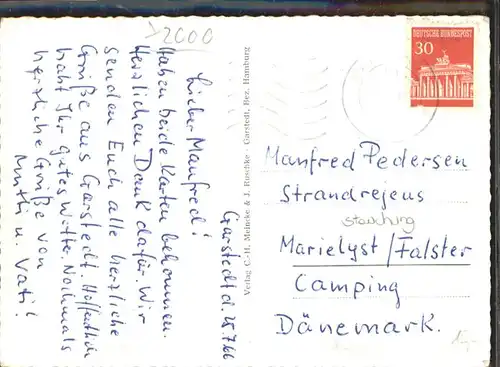 2000
Garstedt d. 25.7.66
Lieber Manfred!
Haben beide Karten bekommen.
Herzlichen Dank dafür. Wir
senden Euch alle herzliche
Grüße aus Garstedt. Hoffentlich
habt Ihr gutes Wetter. Nochmals
herzliche Grüße von
Mutti u. Vati!
Verlag C.-H. Meincke & J. Ruschke · Garstedt, Bez. Hamburg
DEUTSCHE BUNDESPOST
30
Manfred Pedersen
Strandrejeus
Marielyst/Falster
Camping
Dänemark.